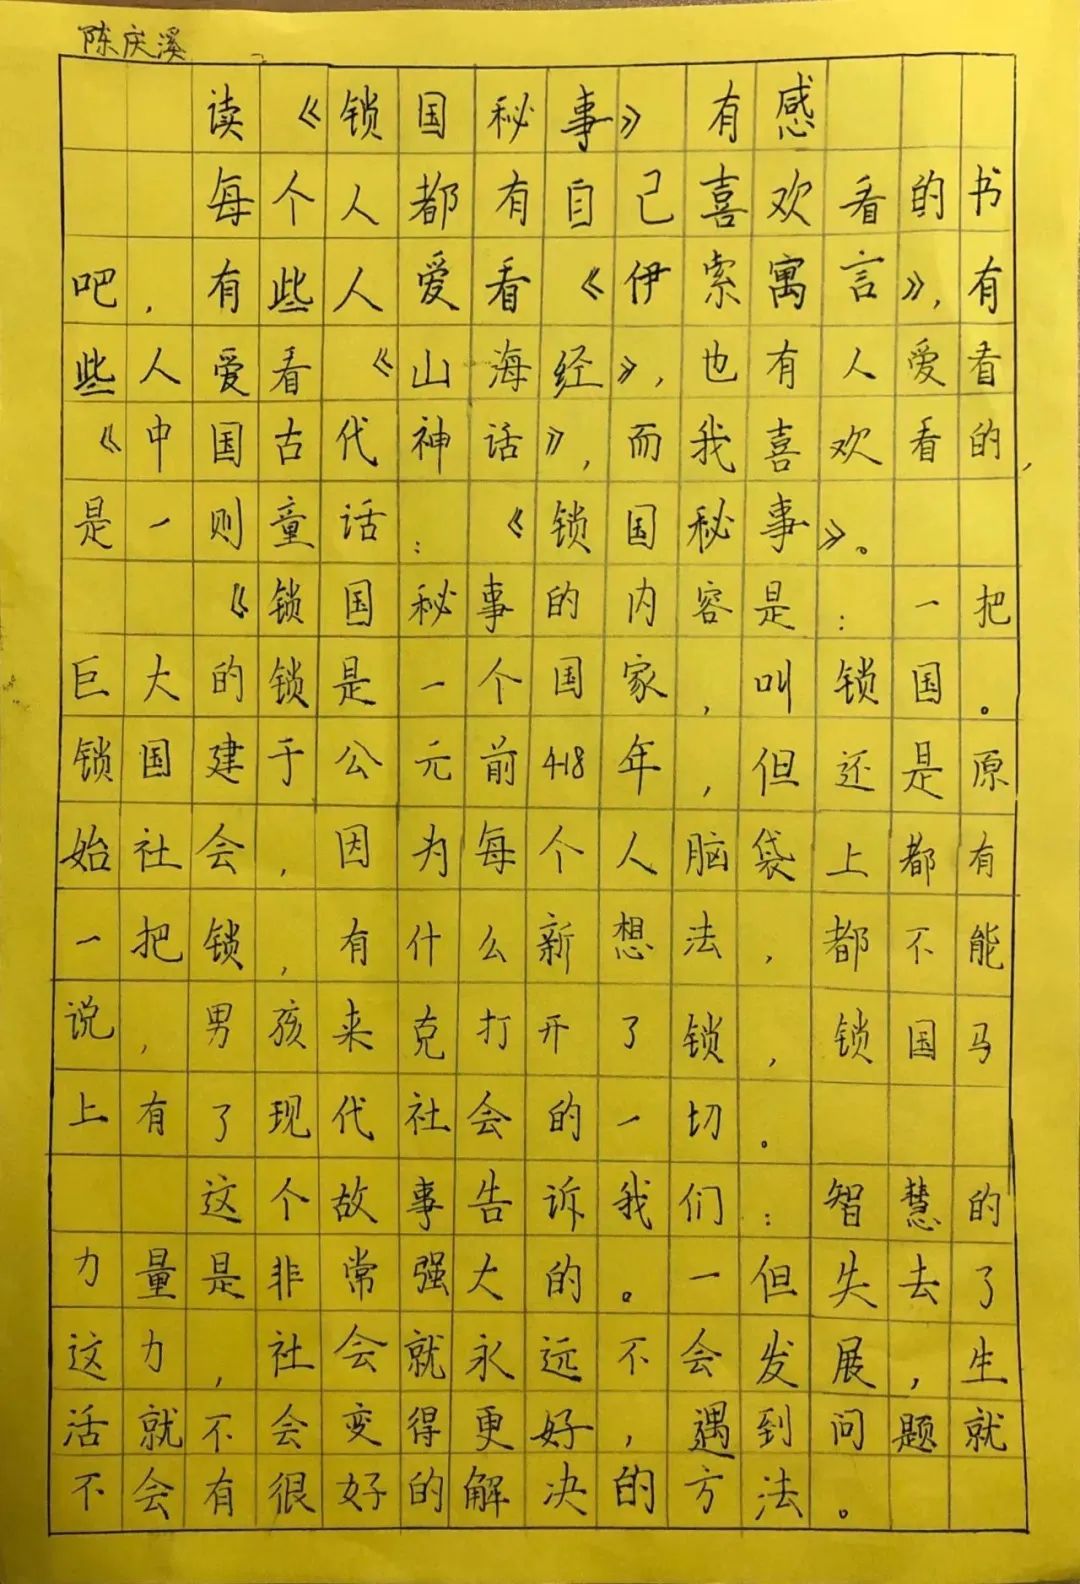 陈庆溪
读《锁国秘事》有感
每个人都有自己喜欢看的书
吧，有些人爱看《伊索寓言》，有
些人爱看《山海经》，也有人爱看
《中国古代神话》，而我喜欢看的，
是一则童话：《锁国秘事》。
《锁国秘事的内容是：一把
巨大的锁是一个国家，叫锁国。
锁国建于公元前418年，但还是原
始社会，因为每个人脑袋上都有
一把锁，有什么新想法，都不能
说，男孩来克打开了锁，锁国马
上有了现代社会的一切。
这个故事告诉我们：智慧的
力量是非常强大的。一但失去了
这力，社会就永远不会发展，生
活就不会变得更好，遇到问题就
不会有很好的解决的方法。